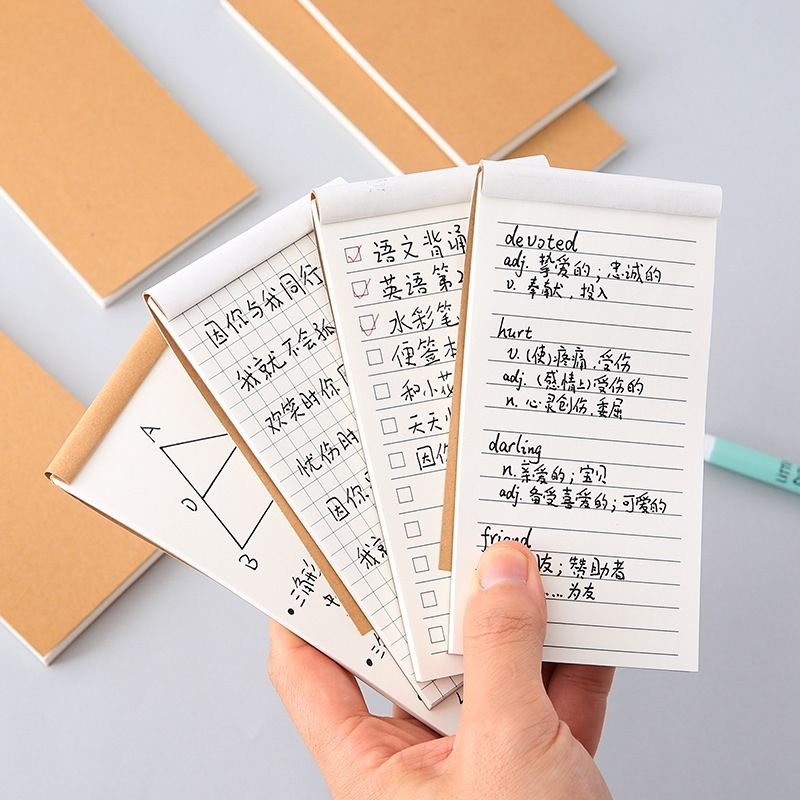 devoted
adj. 挚爱的；忠诚的
v. 奉献，投入
hurt
v. (使)疼痛，受伤
adj. (感情上)受伤的
n. 心灵创伤，委屈
darling
n. 亲爱的；宝贝
adj. 备受喜爱的；可爱的
friend
友；赞助者
....为友
语文背诵
英语第
水彩笔
便签本
和小花
天天
因你
因你与我同行
我就不会孤
欢笑时你
忧伤时
因你
我就
A
D
B
三角形